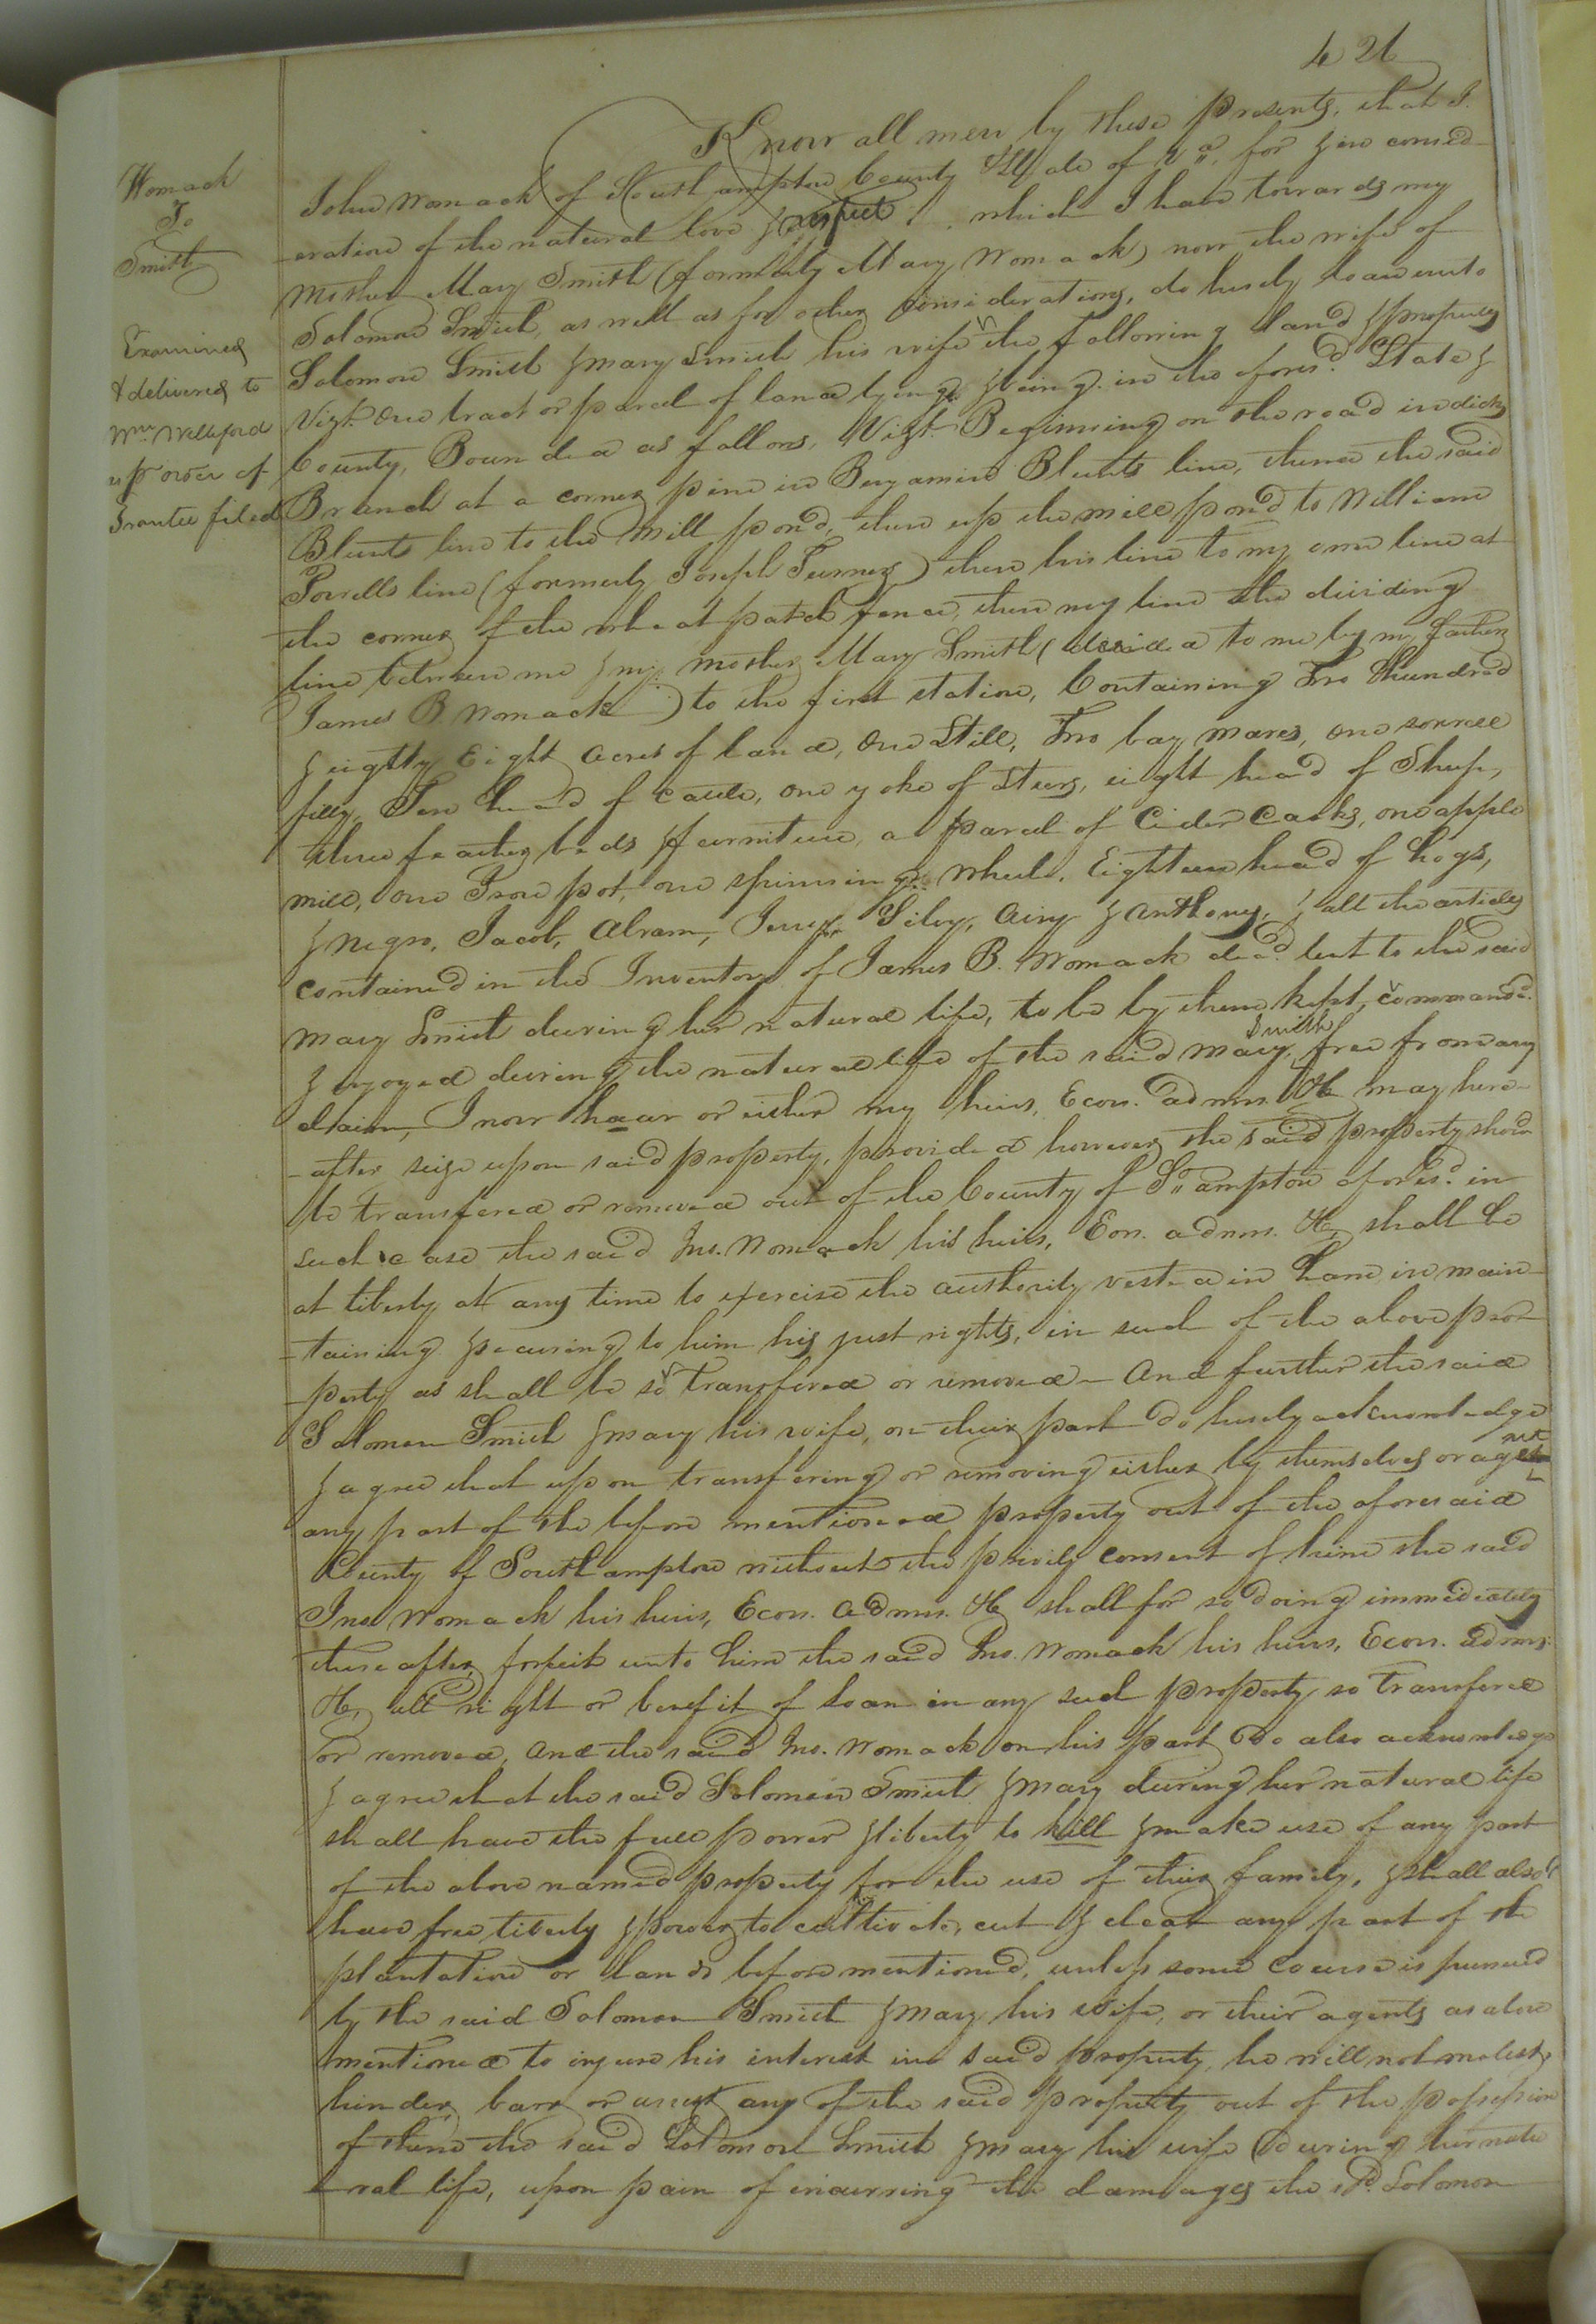 421
Womack
To
Smith
Examined
& delivered to
Wm. Welleford
up order of
Grantee filed
Know all men by these presents, that I
John Womack of Southampton County & State of Va. for & in consid-
-eration of the natural love & respect, which I have towards my
mother Mary Smith (formerly Mary Womack) now the wife of
Solomon Smith, as well as for other considerations, do hereby loan unto
Solomon Smith & Mary Smith his wife the following land & property
Vizt. One tract or parcel of land lying & being in the aforesd. State &
County, Bounded as follows, Vizt. Beginning on the road in dicks
Branch at a corner pine in Benjamin Blunts line, thence the said
Blunts line to the Mill pond, thence up the mill pond to William
Powells line (formerly Joseph Turner) thence his line to my own line at
the corner of the wheat patch fence, thence my line the dividing
line between me & my mother Mary Smith (devised to me by my Father
James B. Womack) to the first station, Containing Two hundred
& eighty Eight acres of land, One Still, Two bay mares, one sorrell
filly, Ten head of cattle, one yoke of Steers, eight head of Sheep,
three feather beds & furniture, a parcel of Cider Casks, one apple
mill, one Iron pot, one spinning wheel, Eighteen head of hogs,
& negro, Jacob, Abram, Silvy, Airy & Anthony, & all the articles
contained in the Inventory of James B. Womack decd. lent to the said
Mary Smith during her natural life, to be by them kept, commanded
& enjoyed during the natural life of the said Mary Smith, free from any
claim, I now have or either my heirs, Ecors. admrs. &c may here-
-after seize upon said property, provided however the said property should
be transfered or removed out of the County of So.ampton aforesd. in
such case the said Jno. Womack his heirs, Eors. admrs. &c, shall be
at liberty at any time to exercise the authority vested in them in main-
-taining & securing to him his just rights, in such of the above pro-
-perty as shall be so transfered or removed - And further the said
Solomon Smith & Mary his wife, on their part do hereby acknowledge
& agree that upon transfering or removing either by themselves or agent
any part of the before mentioned property out of the aforesaid
County of Southampton without the privily consent of him the said
Jno. Womack his heirs, Ecors. admrs. &c shall for so doing immediately
thereafter, forfeit unto him the said Jno. Womack his heirs, Ecors. admrs.
&c, all right or benefit of loan in any such property so transfered
or removed, And the said Jno. Womack on his part do also acknowledge
& agree that the said Solomon Smith & Mary during her natural life
shall have the full power & liberty to kill & make use of any part
of the above named property for the use of their family, & shall also
have free liberty & power to cultivate, cut & clear any part of the
plantation or lands before mentioned, unless some course is pursued
by the said Solomon Smith & Mary his wife, or their agents as above
mentioned to injure his interest in said property, he will not molest,
hinder, barr or any of the said property out of the possession
of them the said Solomon Smith & Mary his wife during her natu
-ral life, upon pain of incurring the damages the sd. Solomon